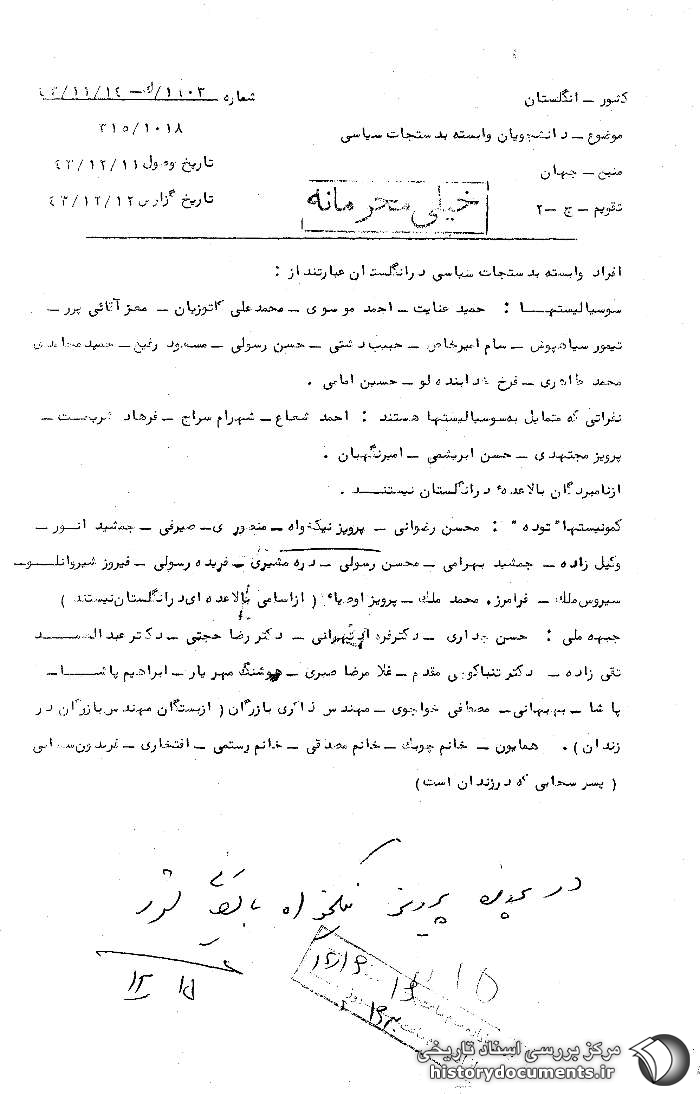 کشور - انگلستان
شماره
موضوع - دانشجویان وابسته بدستجات سیاسی
۳۱۵/۱۰۱۸
منبع - جهان
تاریخ وصول ۴۳/۱۲/۱۱
تقویم - ج - ۲
تاریخ گزارش ۴۳/۱۲/۱۲
خیلی محرمانه
افراد وابسته بدستجات سیاسی در انگلستان عبارتند از :
سوسیالیستها : حمید عنایت - احمد موسوی - محمدعلی کاتوزیان - معز آقائی پور -
تیمور سیاهپوش - سام امیرخاص - حبیب دشتی - حسن رسولی - مسعود رفیع - حمید محامدی
محمد طاهری - فرخ دابنده لو - حسین امامی .
نفراتی که متمایل به سوسیالیستها هستند : احمد شعاع - شهرام سراج - فرهاد -
پرویز مجتهدی - حسن ابریشمی - امیر نگهبان .
از نامبردگان بالا عده ء در انگلستان نیستند .
کمونیستها " توده " : محسن رضوانی - پرویز نیکخواه - منصوری - صیرفی - جمشید انور -
وکیل زاده - جمشید بهرامی - محسن رسولی - دره مشیری - فریده رسولی - فیروز شیروانلو -
سیروس ملک - فرامرز، محمد ملک - پرویز اوصیاء ( از اسامی بالا عده ای در انگلستان نیستند )
جبهه ملی : حسن جداری - دکتر فره تهرانی - دکتر رضا حجتی - دکتر عبدالصمد
تقی زاده - دکتر تنباکویی مقدم - غلامرضا صبری - هوشنگ مهریار - ابراهیم پاشا -
پاشا - بهبهانی - مصطفی خواجوی - مهندس ذاکری بازرگان ( از بستگان مهندس بازرگان در
زندان ) . همایون - خانم چوبک - خانم مصدقی - خانم رستمی - افتخاری - فریدون سحابی
( پسر سحابی که در زندان است )
در پرونده پرویز نیکخواه بایگانی شود
۱۵
۱۲ ۱۵
مرکز بررسی اسناد تاریخی
historydocuments.ir